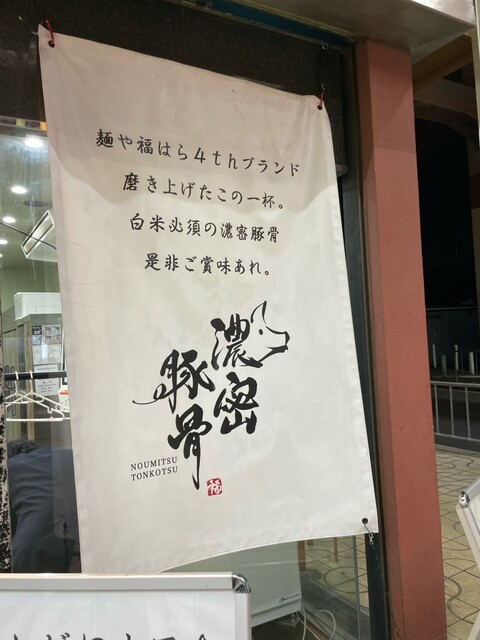 麺や福はら4thブランド
磨き上げたこの一杯。
白米必須の濃密豚骨
是非ご賞味あれ。
濃密
豚骨
NOUMITSU
TONKOTSU
福